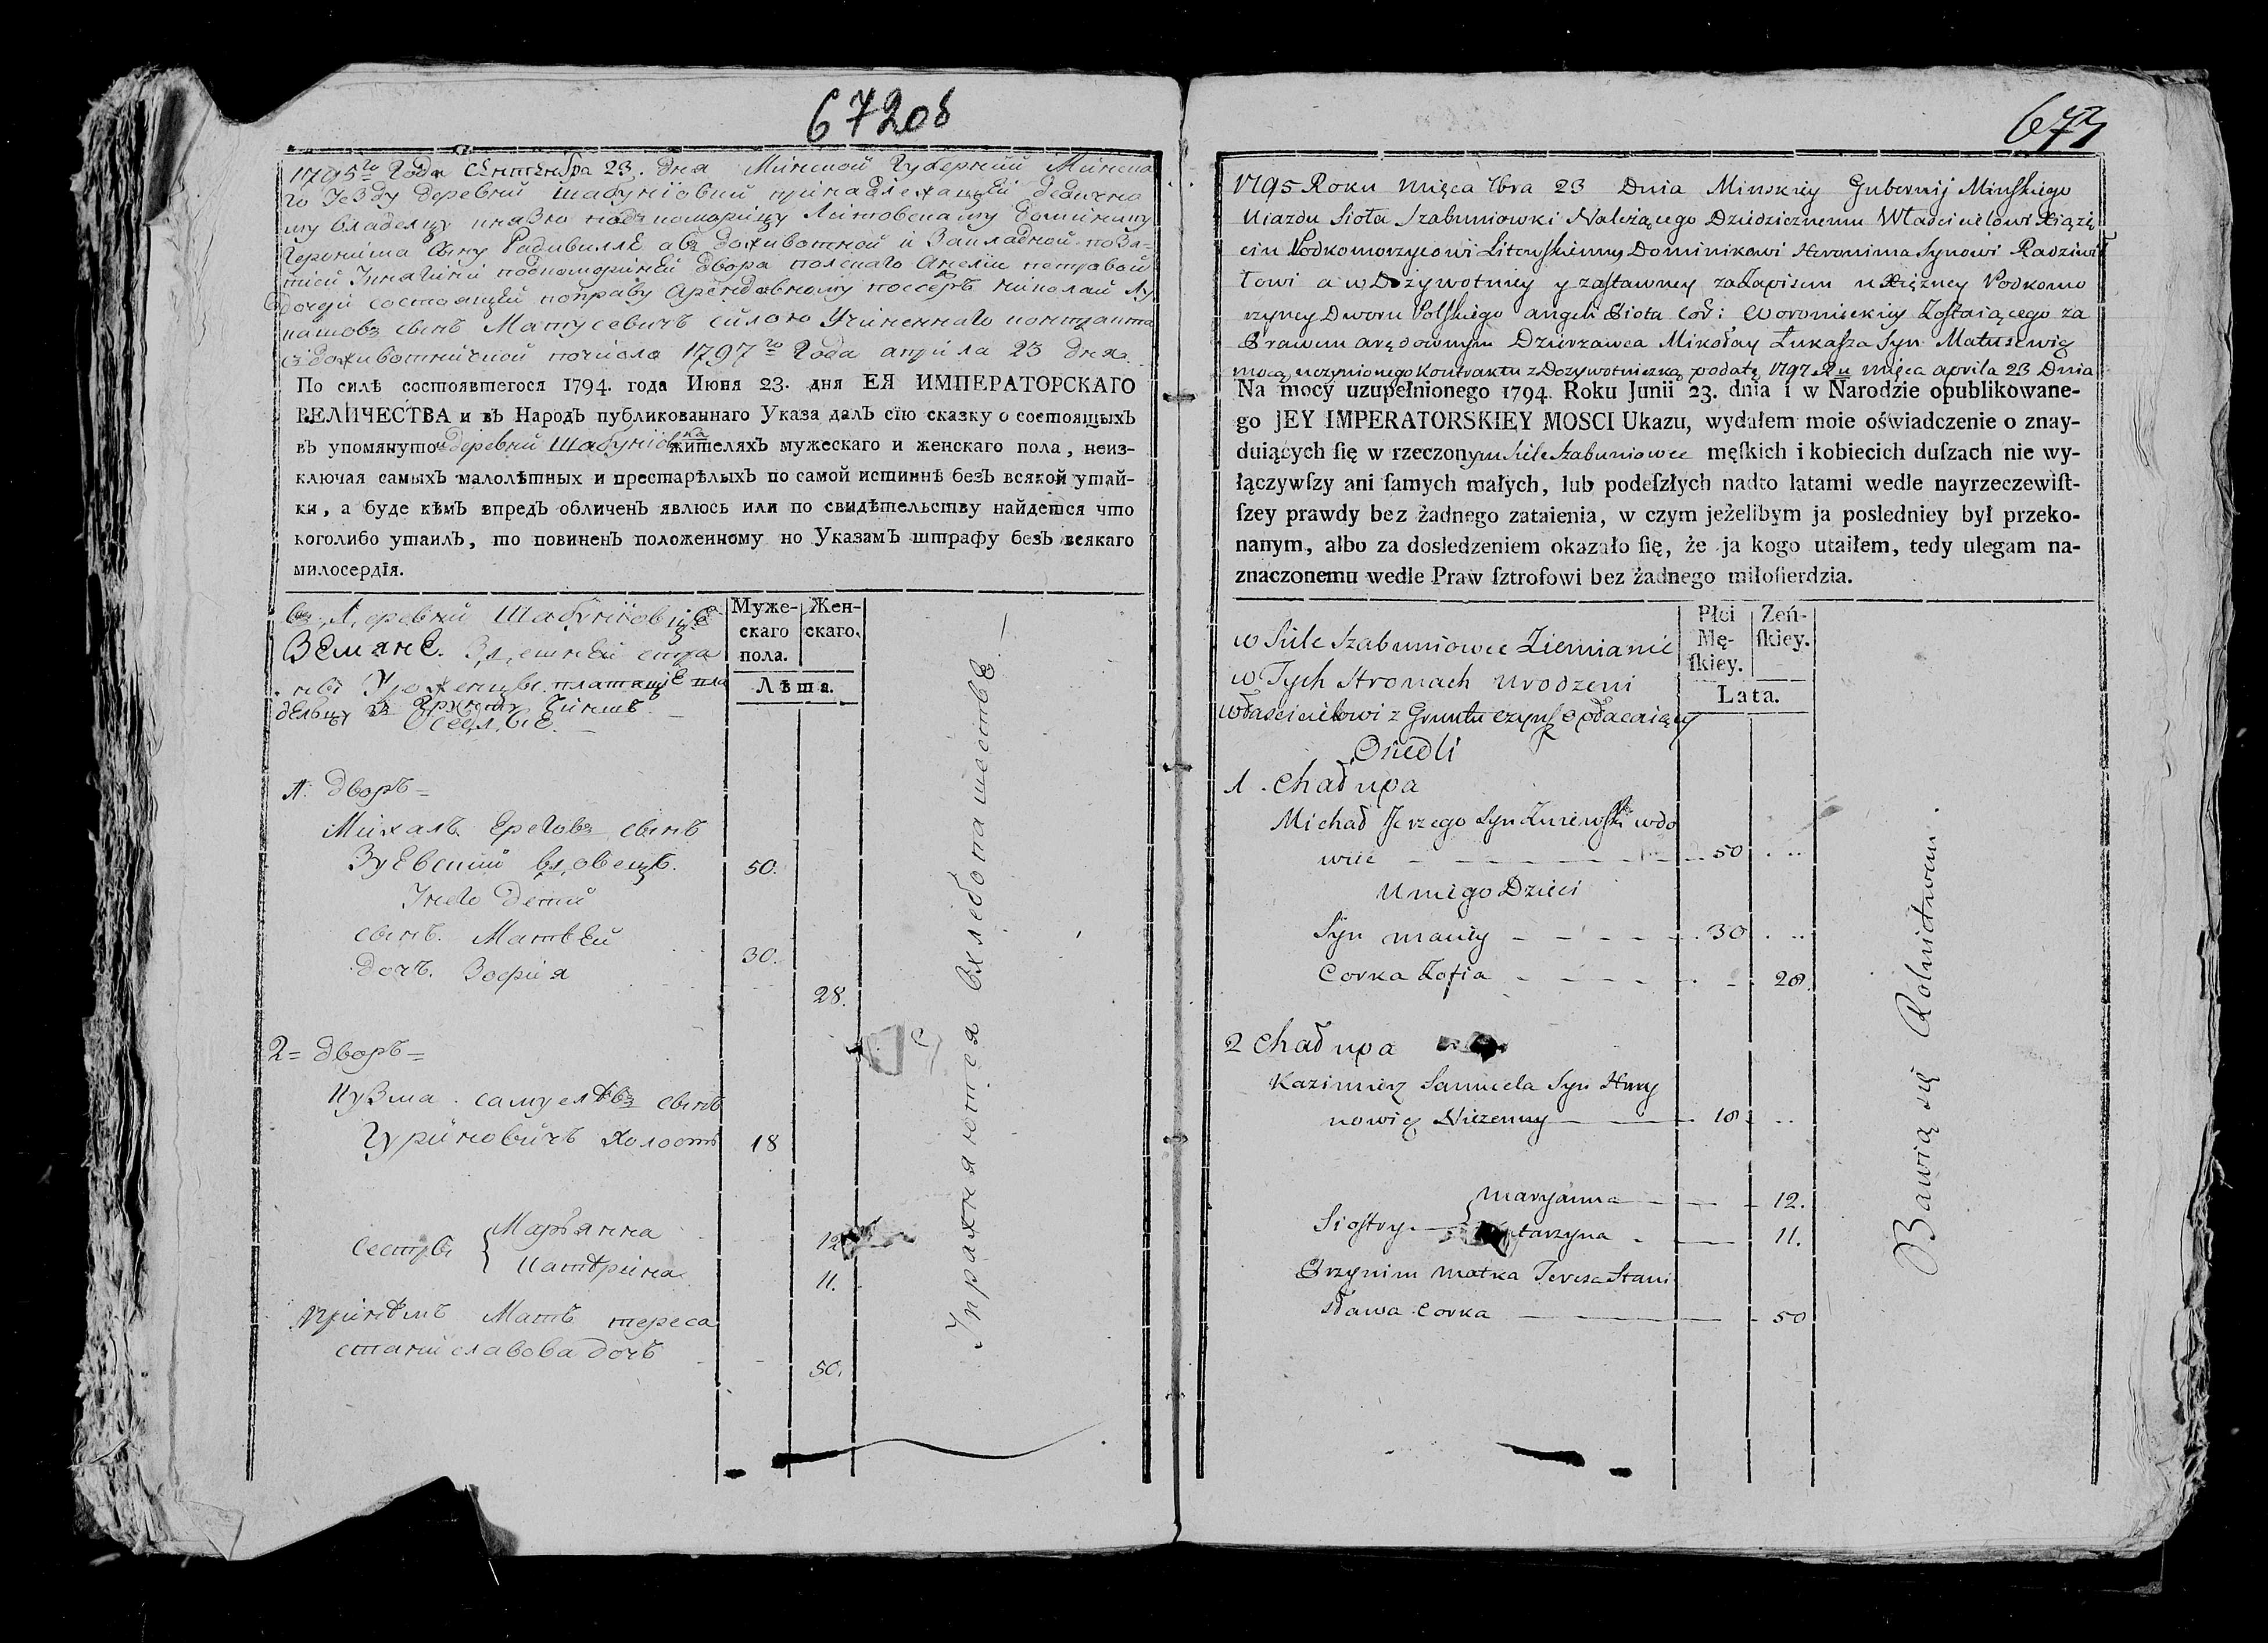 672об
1795го Года Сентебра 23. дня Минской Губернии Минска
го Уезду деревни Шабуніовки принадлежащей дедично
му владелцу князю подкоморицу Литовскому Доминику
Геронима сыну Радивиллѣ а въ доживотной и закладной
подкомориней двора полскаго Анелии петровой
дочери состоящей поправу Арендовному поссесъ николай Лу
кашовъ сынъ Матусевичъ силою Учиненнаго контракта
здоживотничкой почисла 1797го Года априла 23 дня
По силѣ состоявшегося 1794. года Июня 23. дня ЕЯ ИМПЕРАТОРСКАГО
ВЕЛИЧЕСТВА и въ Народъ публикованнаго Указа далъ сїю сказку о состоящыхъ
въ упомянутой деревни Шабуніовка жителяхъ мужескаго и женскаго пола, неиз-
ключая самыхъ малолѣтных и престарѣлыхъ по самой истиннѣ безъ всякой утай-
ки, а буде кѣмъ впредъ обличенъ явлюсь или по свидѣтельству найдется что
коголибо утаилъ, то повиненъ положенному по Указамъ штрафу безъ всякаго
милосердїя.
въ Деревни Шабуніовцѣ
Земяне. Здешней стра
ны Уроженцы. платящіе вла
дельцу з Грунту Чиншъ
Оседлые.
Муже-
скаго
пола.
Жен-
скаго.
Лѣта.
1. дворъ =
Михалъ Ереговъ сынъ
Зуевский вдовецъ. 50.
Унего дети
сынъ. Матвей 30.
дочъ. Зофия 28.
2 = дворъ =
Кузма. самуелѣвъ сынъ
Гуриновичъ холостъ 18
сестры { Марьянна 12
Катѣрина 11.
Принѣмъ Мать тереса
станиславова дочъ 50.
Упражняются вхлебопашестве. —
673
1795 Roku Mięca 7bra 23 Dnia Minskiey Gubernij Minskiego
Uiazdu Sioła Szabuniowki Należącego Dziedzicznemu Właścicielowi Xiążę
ciu Podkomorzycowi Litewskiemu Dominikowi Heronima Synowi Radziwi
łłowi a w Dożywotniey y zastawney zaZapisem u Xiężney Podkomo
rzyney Dworu Polskiego angeli Piotra Cor: Woronieckiey Zostaiącego za
Prawem arędownym Dzierzawca Mikołay Łukasza Syn Matusewicz
mocą uczynionego Kontraktu z Dożywotniczką podatę 1797 Ru Mięca aprila 23 Dnia
Na mocy uzupełnionego 1794. Roku Junii 23. dnia i w Narodzie opublikowane-
go JEY IMPERATORSKIEY MOSCI Ukazu, wydałem moie oświadczenie o znay-
duiących ſię w rzeczonym Siele Szabuniowce męſkich i kobiecich duſzach nie wy-
łączywſzy ani ſamych małych, lub podeſzłych nadto latami wedle nayrzeczewiſt-
ſzey prawdy bez żadnego zataienia, w czym jeżelibym ja posledniey był przeko-
nanym, albo za dosledzeniem okazało ſię, że ja kogo utaiłem, tedy ulegam na-
znaczonemu wedle Praw ſztrofowi bez żadnego miłoſierdzia.
w Siele Szabuniowce Ziemianie
w Tych Stronach Urodzeni
właścicielowi z Gruntu czynsz opłacaiący
Osiedli
Płci
Mę-
ſkiey.
Zeń-
ſkiey.
Lata.
1. Chałupa
Michał Jerzego Syn Zuiewski wdo
wiec 50
U niego Dzieci
Syn maciey 30
Corka Zofia 28.
2 Chałupa
Kazimierz Samuela Syn Hury
nowicz Nieżenny 18
Siostry { Maryanna 12.
tarzyna 11.
Przynim Matka Teresa Stani
sława Corka 50
Bawią się Rolnictwem.